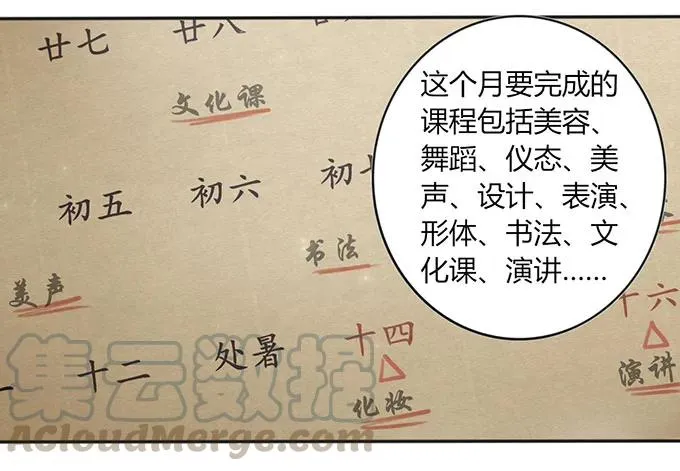 廿七
廿八
文化课
初五
初六
初七
美声
书法
十二
处暑
十四
化妆
十六
演讲
这个月要完成的
课程包括美容、
舞蹈、仪态、美
声、设计、表演、
形体、书法、文
化课、演讲……
集云数据
ACloudMerge.com